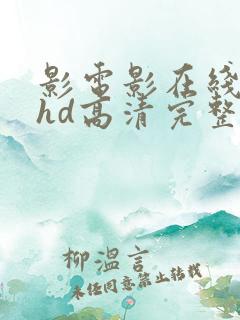 影电影在线
hd高清完整
柳溫言
未经同意禁止转载